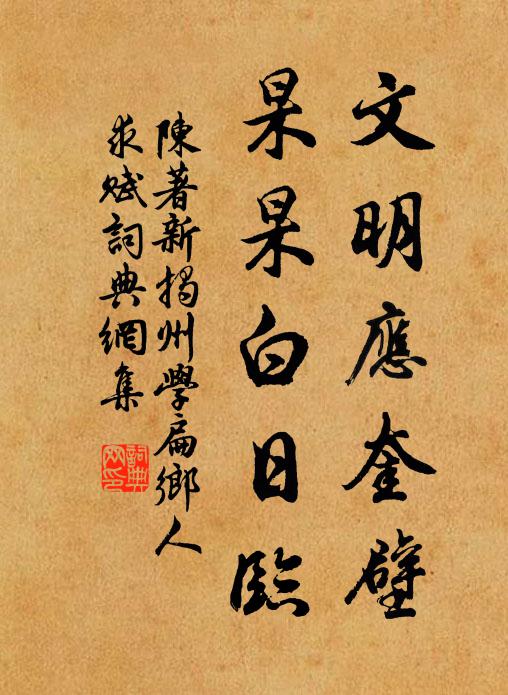 文明應奎壁
杲杲白日臨
陳著新揭州學扁鄉人
求賦詞典網集
詞典網印